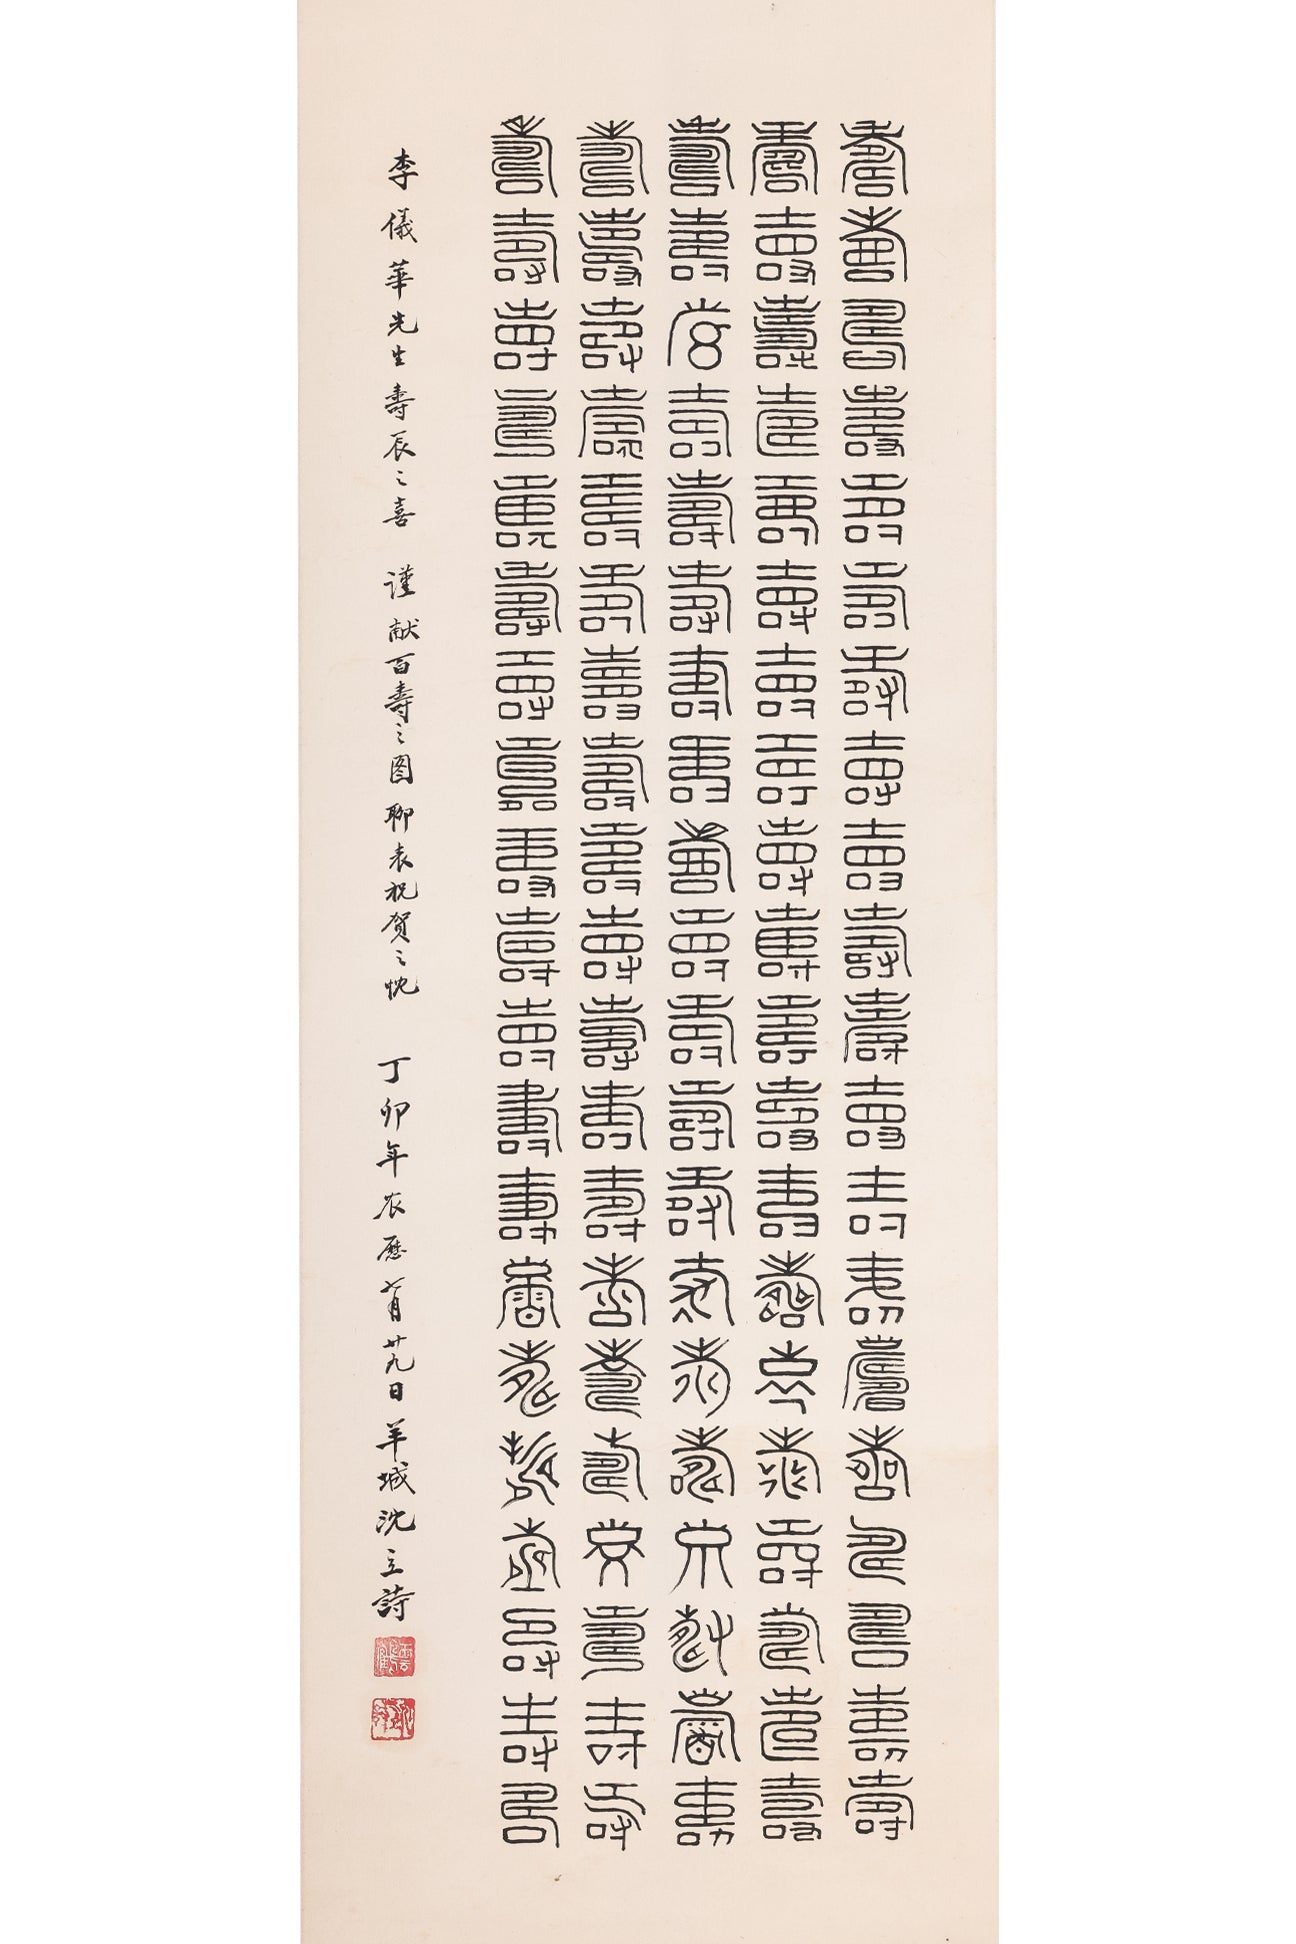 壽壽壽壽壽壽壽壽壽壽壽壽壽壽壽壽壽壽壽壽
壽壽壽壽壽壽壽壽壽壽壽壽壽壽壽壽壽壽壽壽
壽壽壽壽壽壽壽壽壽壽壽壽壽壽壽壽壽壽壽壽
壽壽壽壽壽壽壽壽壽壽壽壽壽壽壽壽壽壽壽壽
壽壽壽壽壽壽壽壽壽壽壽壽壽壽壽壽壽壽壽壽
李儀華先生壽辰之喜 謹献百壽之图 聊表祝贺之忱 丁卯年农歷七月廿九日羊城沈立詩